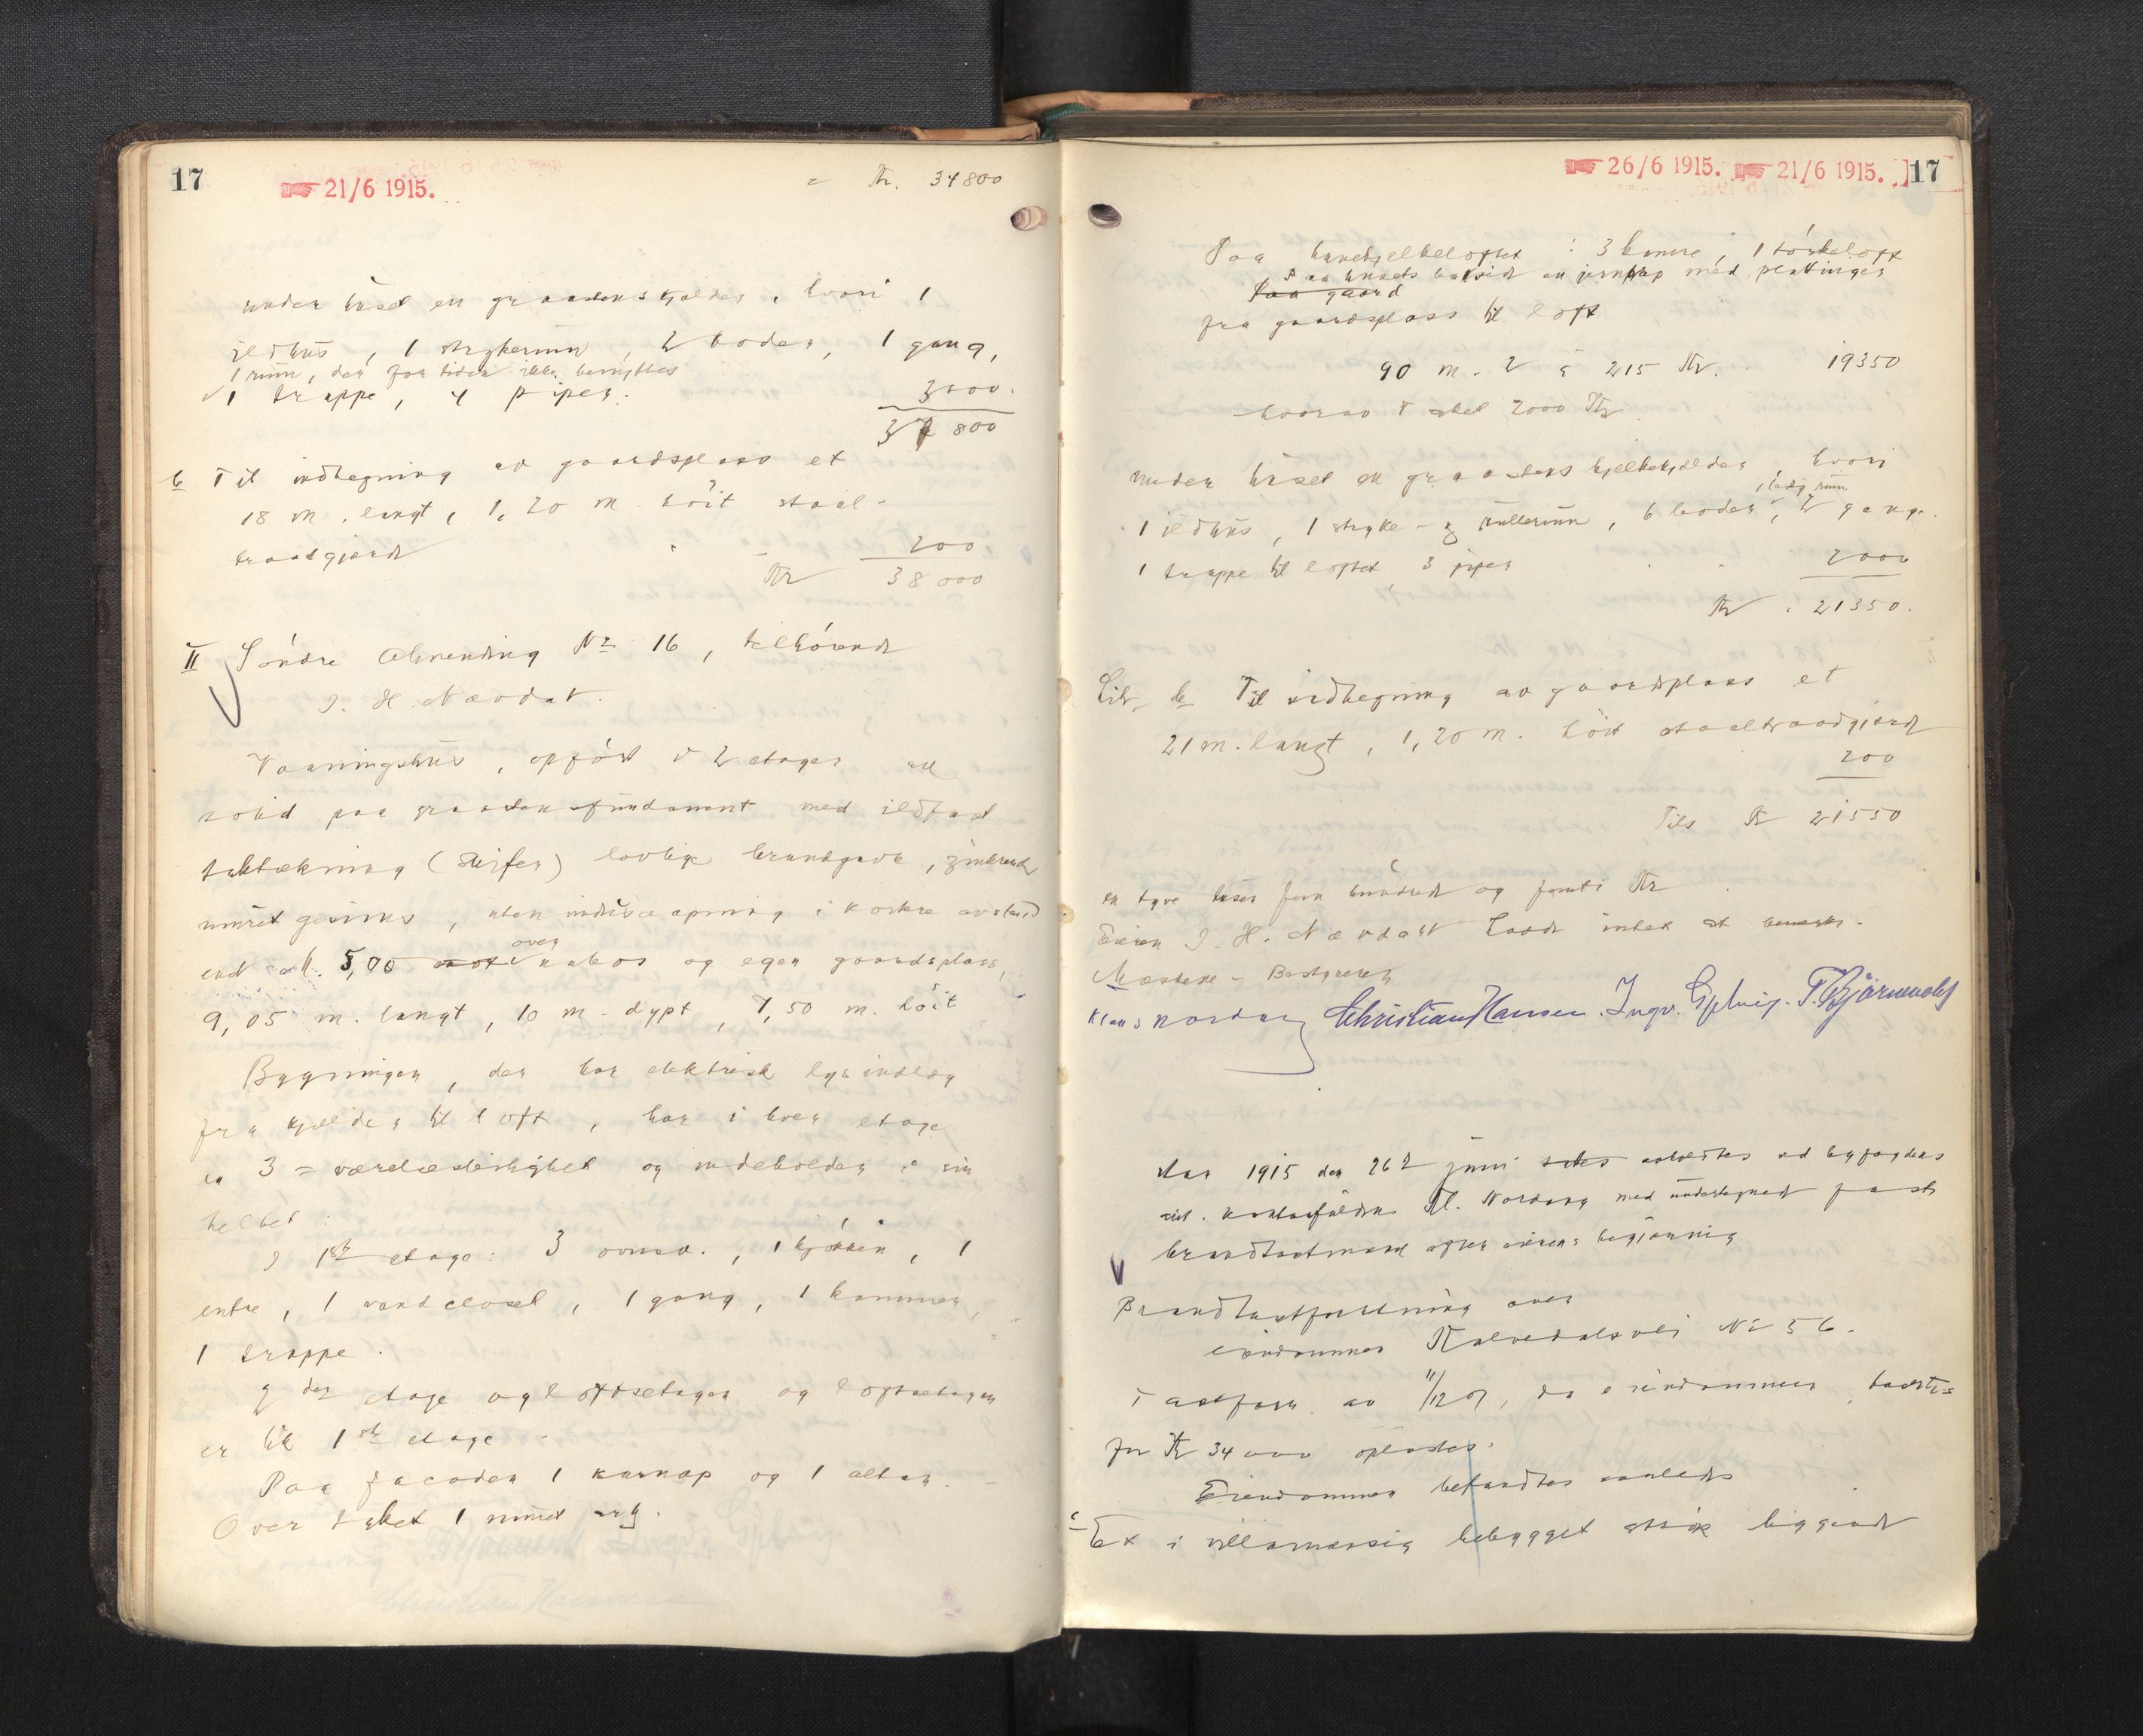 17
21/6 1915.
= Kr. 34800
under huset en graastenskjelder, hvori 1
ildhus, 1 strykerum, 2 boder, 1 gang,
1 rum, der for tiden ikke benyttes
1 trappe, 4 piper.
3000.
37800
b Til indhegning av gaardsplass et
18 m. langt, 1,20 m höit staal-
traadgjærde
200
Kr 38000
II Söndre Almending No 16, tilhörende
I. H. Nævdal.
Vaaningshus, opfört i 2 etager
solid paa graastensfundament med ildfast
taktækning (skifer) lovlige brandgavle,
muret gesims, uten indløsæapning i kortre avstand
end 5,00 over nabos og egen gaardsplass,
9,05 m. langt, 10 m. dypt, 7,50 m. höit
Bygningen, der har elektrisk lys indlæg
fra kjelder til loft, har i hver etage
en 3 = værelsesleilighet og indeholder i sin
helhet:
I 1ste etage: 3 ovnsv., 1 kjökken, 1
entre, 1 vandclosel, 1 gang, 1 kammer,
1 trappe.
2den etage og loftsetagen og loftsetagen
er lik 1ste etage
Paa facaden 1 karnap og 1 altan.
Over taket 1 muret ark.
26/6 1915. 21/6 1915. 17
Paa hanebjelkeloftet: 3 kamre, 1 törkeloft
Paa husets bakside en jerntrap med plattinger
Paa gaard
fra gaardsplass til loft
90 m. 2 à 215 Kr. 19350
hvorav 2000 Kr
under huset en graastens kjelder, hvori
1 ledig rum
1 ildhus, 1 stryke- og rullerum, 6 boder, 2 gange.
1 trappe til loftet, 3 piper
2000
Kr. 21350.
Litr. b Til indhegning av gaardsplass et
21 m. langt, 1,20 m. höit staaltraadgjærde
200
Tils Kr 21550
en tyve tusen fem hundrede og femti Kr
Eieren I. H. Nævdal havde intet at bemerke.
Mæstene - Bestyreren
Klaus Nordang Christian Hansen. Ingv. T. Bjørnundal
Aar 1915 den 26de juni avholdtes ved byfogdens
aut. kontorfuldm. Kl. Nordang med undertegnede faste
brandtaxtmænd efter eierens begjæring
Brandtaxtforretning over
eiendommen Kalvedalsvei No 56.
Taxtforr. av 11/12 07, da eiendommen taxertes
for Kr 34000 oplæstes.
Eiendommen befandtes saaledes
Et i villamæssig bebygget strök liggende